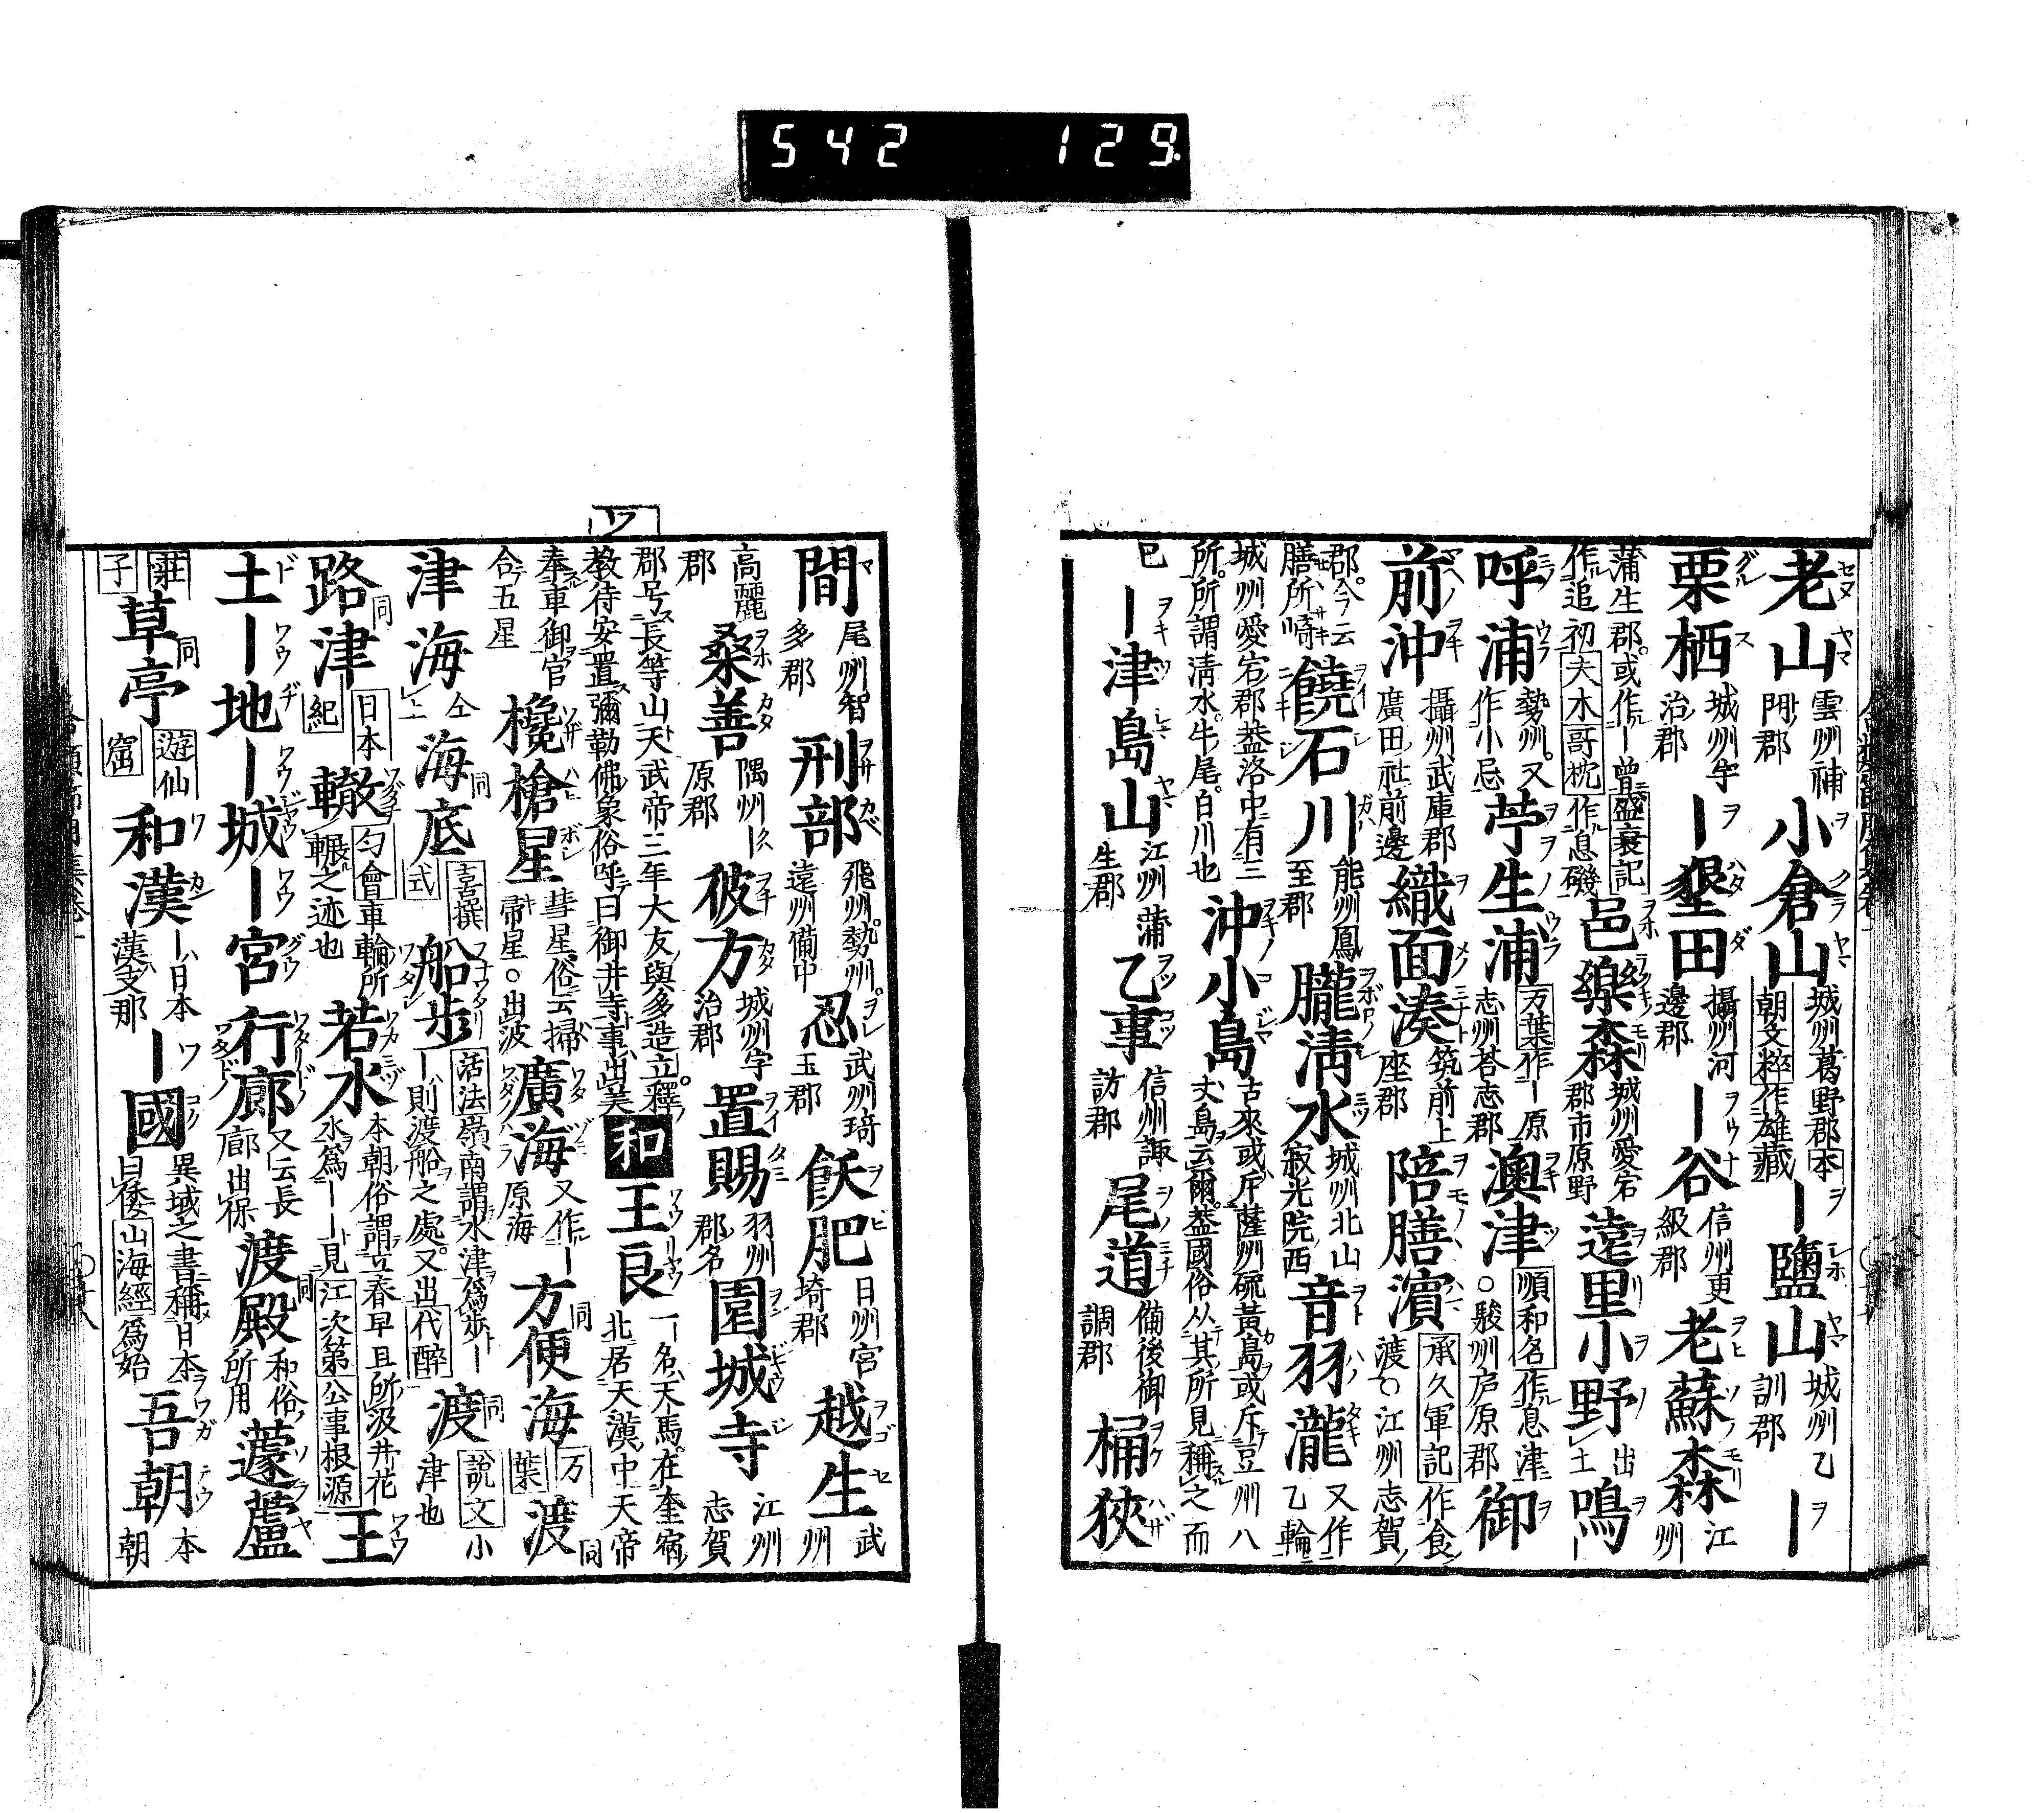 542 129.
老山雲州補門郡小倉山城州葛野郡本朝文粹作雄藏ー鹽山城州乙訓郡ー
栗栖城州宇治郡ー墾田攝州河邊郡ー谷信州更級郡老蘇森江州
蒲生郡或作ー曾盛衰記作追初夫木哥枕作息磯邑樂森城州愛宕郡市原野遠里小野出土ー鳴
呼浦勢州又作小忌苧生浦万葉作ー原志州荅志郡澳津順和名作息津○駿州庐原郡御
前沖攝州武庫郡廣田社前邊織面湊筑前上座郡陪膳濱承久軍記作食渡○江州志賀
郡今云膳所崎饒石川能州鳳至郡朧淸水城州北山寂光院西音羽瀧又作乙輪
城州愛宕郡葢洛中有三所所謂淸水牛尾白川也沖小島古來或斥薩州硫黃島或斥豆州八丈島云爾葢國俗从其所見稱之而
已ー津島山江州蒲生郡乙事信州諏訪郡尾道備後御調郡桶狹
ワ
間尾州智多郡刑部飛州勢州遠州備中忍武州琦玉郡飫肥日州宮埼郡越生武州
高麗郡桑善隅州ー原郡彼方城州宇治郡置賜羽州郡名園城寺江州志賀
郡号長等山天武帝三年大友與多造立釋教待安置彌勒佛象俗呼曰御井寺事出美和王良一名天馬在奎宿北居天漢中天帝
奉車御官合五星欃槍星彗星俗云掃帚星○出波廣海又作ー原海方便海同万葉渡同
津海仝上海底同喜撰式船步活法嶺南謂水津爲步ー則渡船之處又出代醉渡同說文小津也
路津同日本紀轍匀會車輪所輾之迹也若水本朝俗謂立春早旦所汲井花水爲ーー見江次第公事根源王
土ー地ー城ー宮行廊又云長廊出保渡殿同和俗所用蘧蘆
莊子草亭同遊仙窟和漢ー日本漢支那ー國異域之書稱日本曰倭山海經爲始吾朝本朝